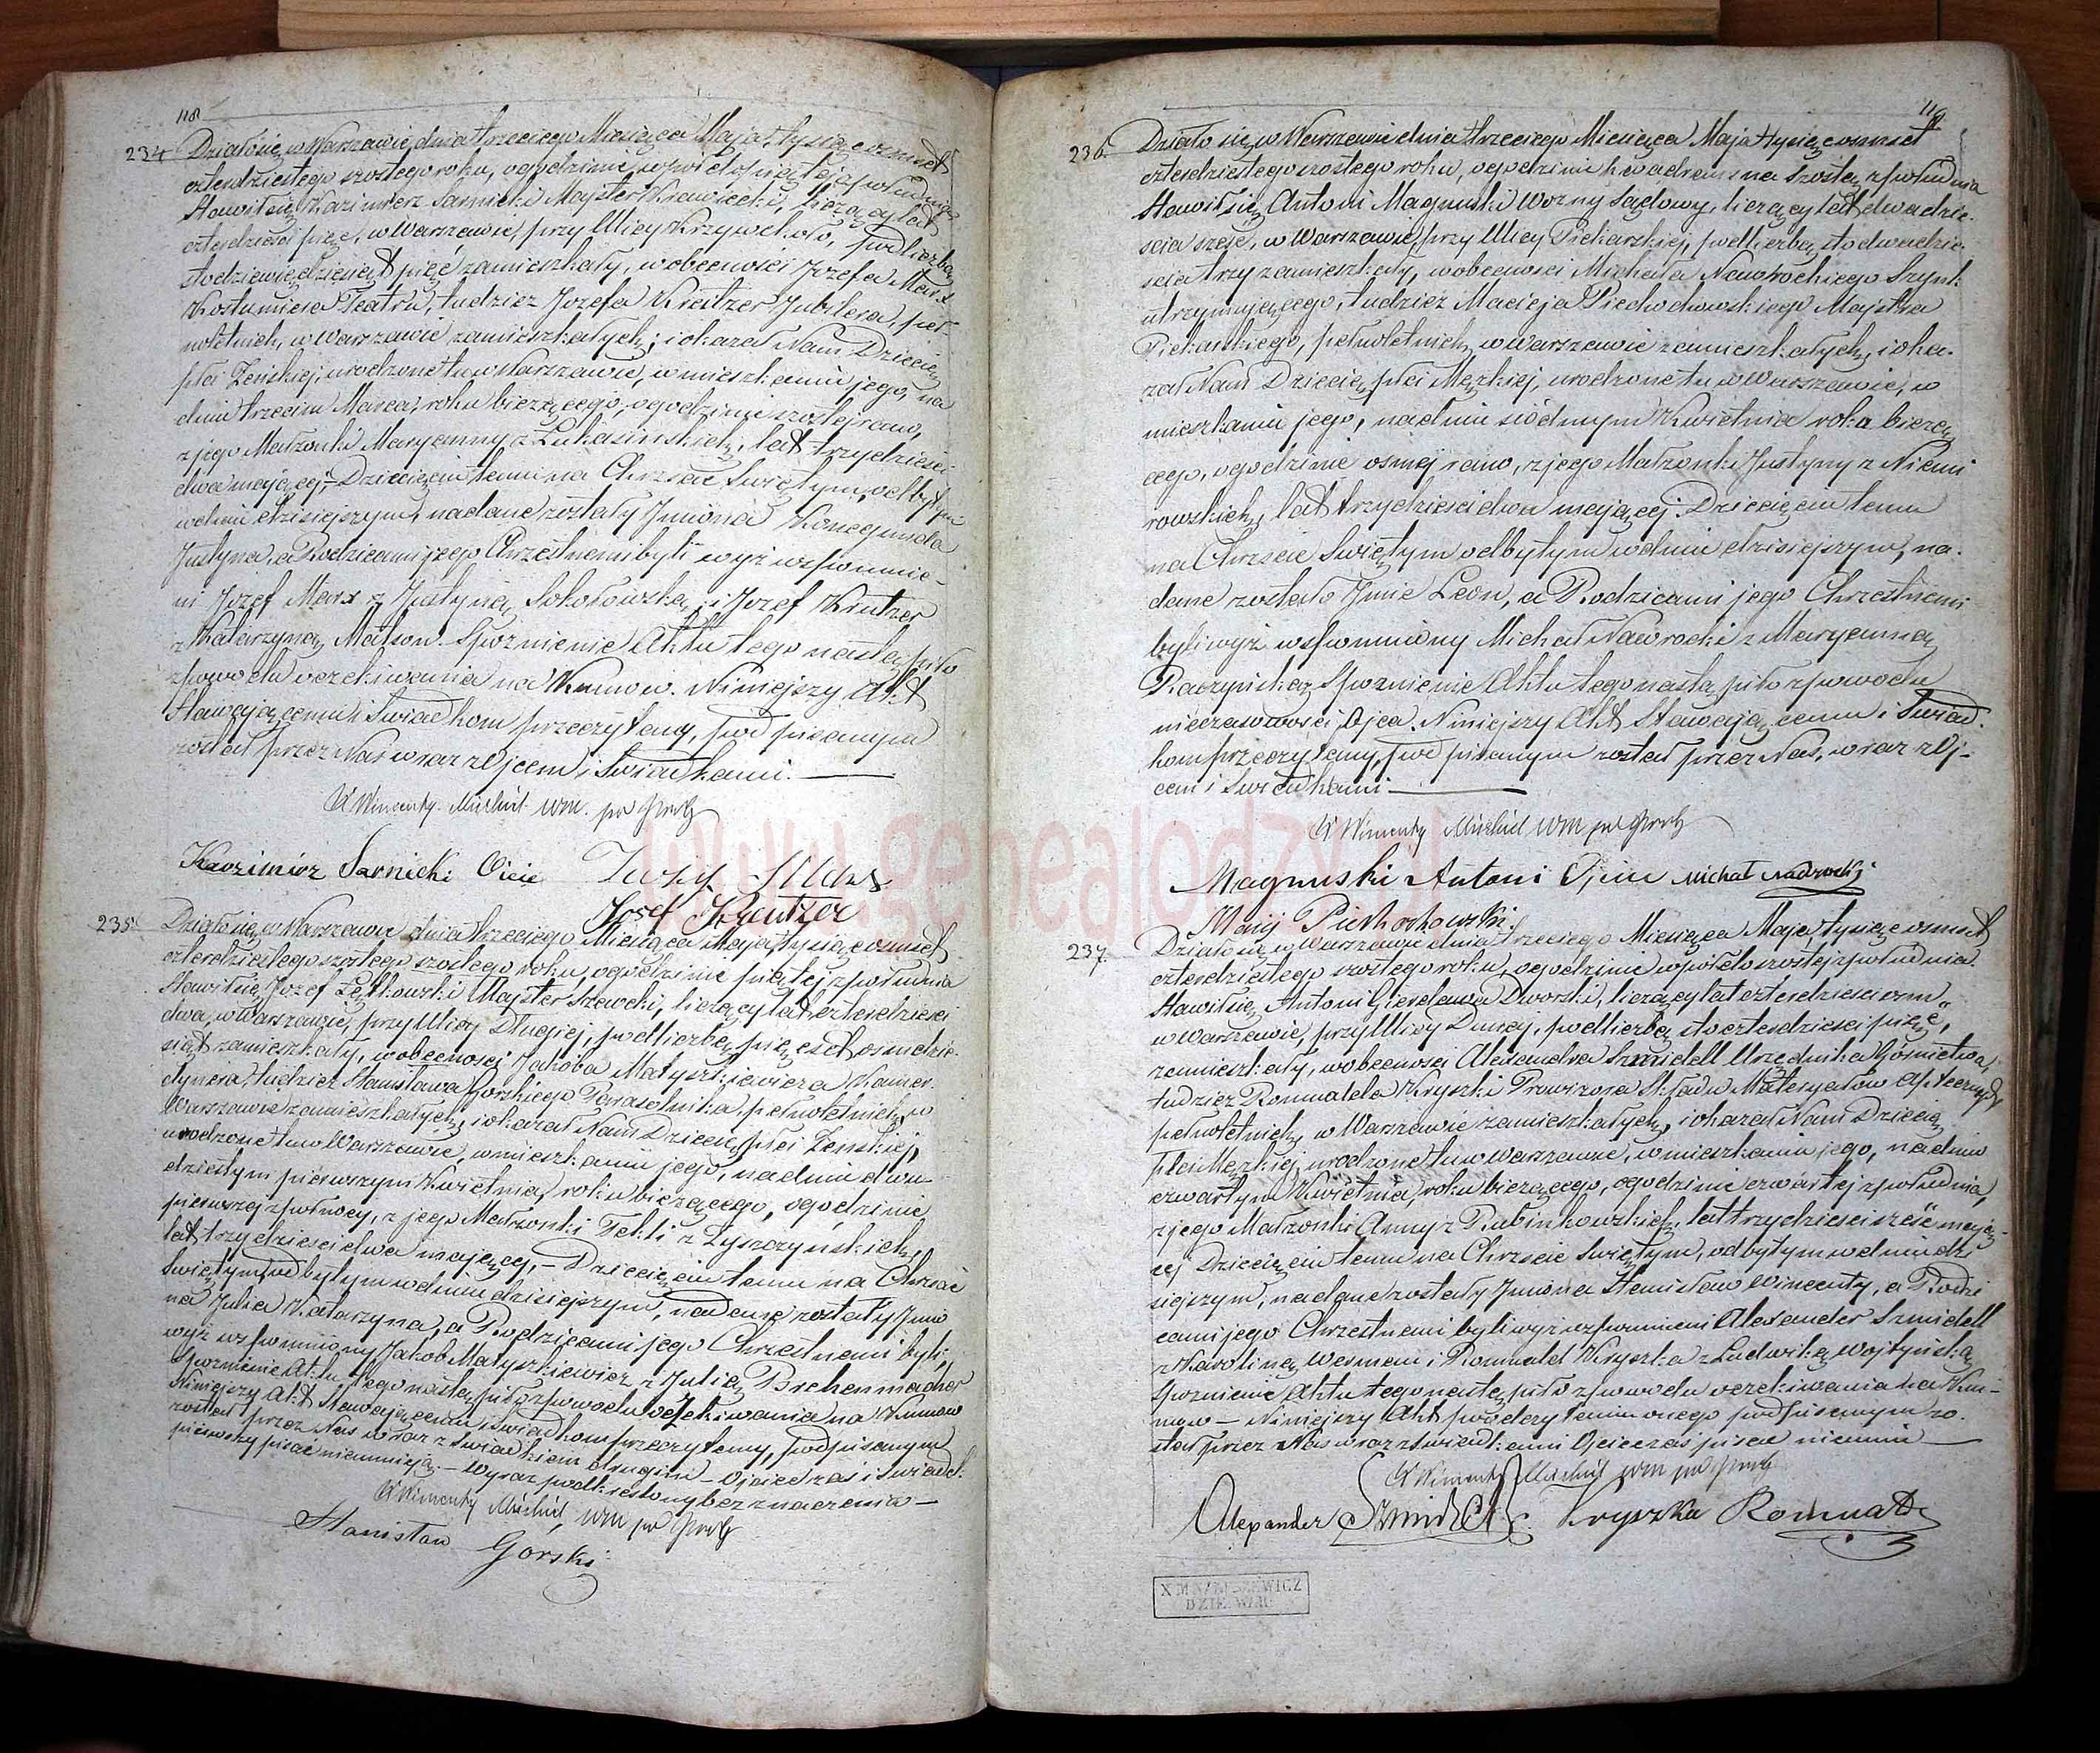 118
234 Działo się w Warszawie dnia trzeciego Miesiąca Maja tysiąc osmset
czterdziestego szostego roku, o godzinie w pół do piątej z południa
Stawił się Kazimierz Sarnicki Majster Krawiecki, liczący lat
czterdzieści pięć, w Warszawie, przy Ulicy Krzywe koło, pod liczbą
sto dziewięćdziesiąt pięć zamieszkały, w obecności Jozefa Marx
Kostumiera Teatru, tudzież Jozefa Kreutzer Jubilera, peł-
noletnich, w Warszawie zamieszkałych; i okazał Nam Dziecię
płci Żeńskiej, urodzone tu w Warszawie, w mieszkaniu jego, na
dniu trzecim Marca, roku bieżącego, o godzinie szostej rano,
z jego Małżonki Maryanny z Łukasińskich, lat trzydzieści
dwa mającej. Dziecięciu temu na Chrzcie Świętym, odbytym
w dniu dzisiejszym, nadane zostały Imiona Konegunda
Justyna, a Rodzicami jego Chrzestnemi byli wyż wspomnie-
ni Jozef Marx z Justyną Sokołowską, i Jozef Kreutzer
z Katarzyną Matson. Spoznienie Aktu tego nastąpiło
z powodu oczekiwania na Kumow. Niniejszy Akt
Stawającemu i Swiadkom przeczytany, podpisanym
został przez Nas wraz z Ojcem i Swiadkami.
X Wincenty Michał WM. po Prob
Kazimirz Sarnicki Ociec Jozef Marx
Josef Kreutzer
235 Działo się w Warszawie dnia trzeciego Miesiąca Maja tysiąc osmset
czterdziestego szostego szostego roku, o godzinie piątej z południa
Stawił się Jozef Majster Szewcki, liczący lat czterdzieści
dwa, w Warszawie, przy Ulicy Długiej, pod liczbą pięćset osmdzie-
siąt zamieszkały, w obecności Jakóba Matyszkiewicza Kamer-
dynera, tudzież Stanisława Gorskiego Parasolnika, pełnoletnich, w
Warszawie zamieszkałych, i okazał Nam Dziecię płci Żeńskiej,
urodzone tu w Warszawie, w mieszkaniu jego, na dniu dwu-
dziestym pierwszym Kwietnia, roku bieżącego, o godzinie
pierwszej z północy, z jego Małżonki Tekli z Łyszczyńskich,
lat trzydzieści dwa mającej, Dziecięciu temu na Chrzcie
Świętym, odbytym w dniu dzisiejszym, nadane zostały Imio
na Julia Katarzyna, a Rodzicami jego Chrzestnemi byli,
wyż wspomniony Jakob Matyszkiewicz z Julią Brehenmacher
Spoznienie Aktu tego nastąpiło z powodu oczekiwania na Kumow
Niniejszy Akt Stawającemu i Swiadkom przeczytany, podpisanym
został przez Nas wraz z Swiadkiem drugim - Ojciec zaś i Swiadek
pierwszy pisać nieumieją. - Wyraz podkreślony bez znaczenia -
X Wincenty Michał WM po Prob
Stanisław Gorski
236 Działo się w Warszawie dnia trzeciego Miesiąca Maja tysiąc osmset
czterdziestego szostego roku, o godzinie kwadrans na szostą z południa
Stawił się Antoni Magnuski Wozny Sądowy, liczący lat dwadzie-
scia szesc, w Warszawie, przy Ulicy Piekarskiej, pod liczbą sto dwadzie-
scia trzy zamieszkały, w obecnosci Michała Nawrockiego Szynk
utrzymującego, tudzież Macieja Piechochowskiego Majstra
Piekarskiego, pełnoletnich, w Warszawie zamieszkałych, i oka-
zał Nam Dziecię płci Męzkiej, urodzone tu w Warszawie, w
mieszkaniu jego, na dniu siódmym Kwietnia roku bieżą
cego, o godzinie osmej rano, z jego Małżonki Justyny z Niemi
rowskich, lat trzydzieści dwa mającej. Dziecięciu temu
na Chrzcie Świętym odbytym w dniu dzisiejszym, na-
dane zostało Imie Leon, a Rodzicami jego Chrzestnemi
byli wyż wspomniony Michał Nawrocki z Maryanną
Raczyńską. Spoznienie Aktu tego nastąpiło z powodu
nieczasowosci Ojca. Niniejszy Akt Stawającemu i Swiad-
kom przeczytany, podpisanym został przez Nas, wraz z Oj-
cem i Swiadkami.
X Wincenty Michał WM po Prob
Magnuski Antoni Ojciec Michał Nawrocki
Maciej Piechochowski
237 Działo się w Warszawie dnia trzeciego Miesiąca Maja, tysiąc osmset
czterdziestego szostego roku, o godzinie w pół do szostej z południa
Stawił się Antoni Gierelawa Dworski, liczący lat czterdzieści osm,
w Warszawie, przy Ulicy Dunaj, pod liczbą sto czterdzieści pięć,
zamieszkały, w obecności Alexandra Szmidell Urzędnika Górnictwa,
tudzież Romualda Kryszki Prowizora Składu Materyałów Aptecznych
pełnoletnich, w Warszawie zamieszkałych, i okazał Nam Dziecię
Płci Męzkiej, urodzone tu w Warszawie, w mieszkaniu jego, na dniu
czwartym Kwietnia, roku bieżącego, o godzinie czwartej z południa,
z jego Małżonki Anny z Rubinkowskich, lat trzydzieści sześć mają-
cej Dziecięciu temu na Chrzcie Swiętym, odbytym w dniu dzi
siejszym, nadane zostały Imiona Stanisław Wincenty, a Rodzi
cami jego Chrzestnemi byli wyż wspomnieni Alexander Szmidell
z Karoliną Wesman i Romuald Kryszka z Ludwiką Wojtyńską
Spoznienie Aktu tego nastąpiło z powodu oczekiwania na Ku-
mow - Niniejszy Akt po odczytaniu onego podpisanym zo-
stał przez Nas wraz z świadkami Ojciec zaś pisać nieumie
X Wincenty Michał WM po Prob
Alexander Szmidell Kryszka Romuald
www.genealodzy.pl